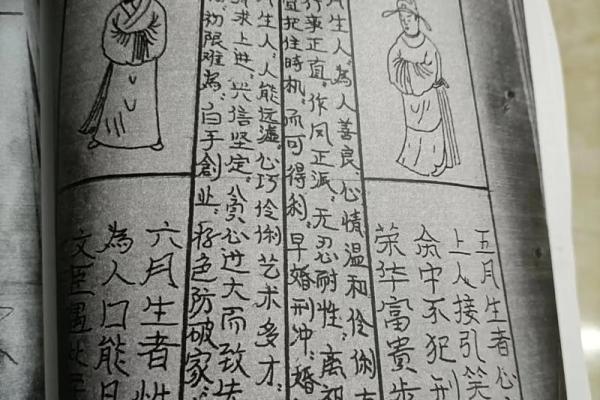 五月生者心
上人接引笑
命中不犯刑
荣华富貴步
月生人，為人善良，心情温和伶俐
行事正直，作风正派，无忍耐性，离祖
宜把住时机，而可得利，早婚刑冲，婚
月生人，人能远涉，心巧伶俐艺术多才，
求上进，兴信坚定，贪心过大而致失
初限难為，白手創业，好色防破家
六月生者性
為人口能
文臣遇